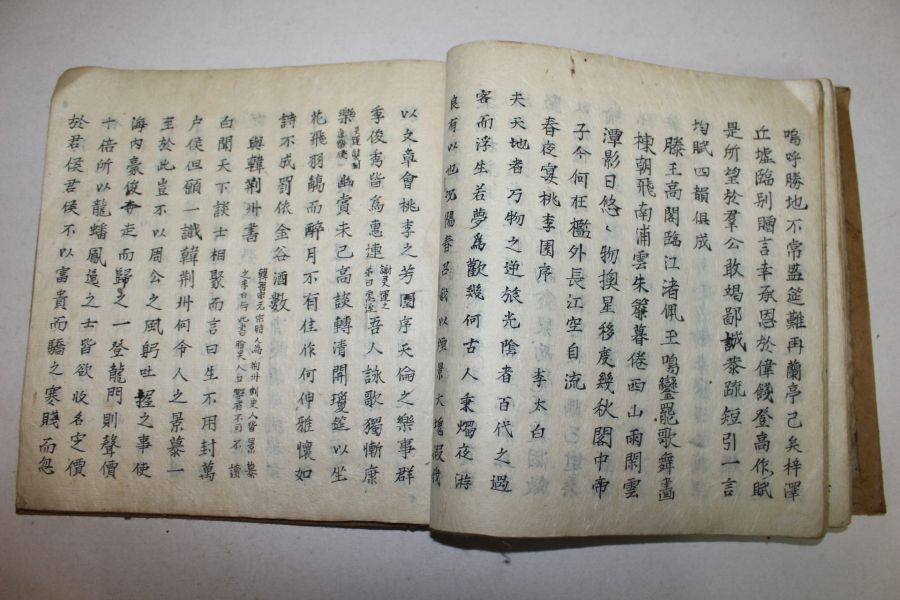 嗚呼勝地不常盛筵難再蘭亭已矣梓澤
丘墟臨別贈言幸承恩於偉餞登高作賦
是所望於羣公敢竭鄙誠恭疏短引一言
均賦四韻俱成
滕王高閣臨江渚佩玉鳴鸞罷歌舞畫
棟朝飛南浦雲朱簾暮倦西山雨閑雲
潭影日悠〻物換星移度幾秋閣中帝
子今何在檻外長江空自流
春夜宴桃李園序 李太白
夫天地者万物之逆旅光陰者百代之過
客而浮生若夢爲歡幾何古人秉燭夜游
良有以也况陽春召我以煙景大塊假我
以文章會桃李之芳園序天倫之樂事群
季俊秀皆爲惠連
謝灵運之
弟曰惠連
吾人詠歌獨慚康
樂
幽賞未已高談轉清開瓊筵以坐
花飛羽觴而醉月不有佳作何伸雅懷如
詩不成罰依金谷酒數
與韓荆州書
白聞天下談士相聚而言曰生不用封萬
户侯但願一識韓荆州何令人之景慕一
至於此豈不以周公之風躬吐握之事使
海内豪俊奔走而歸之一登龍門則聲價
十倍所以龍蟠鳳逸之士皆欲收名定價
於君侯君侯不以富貴而驕之寒賤而忽